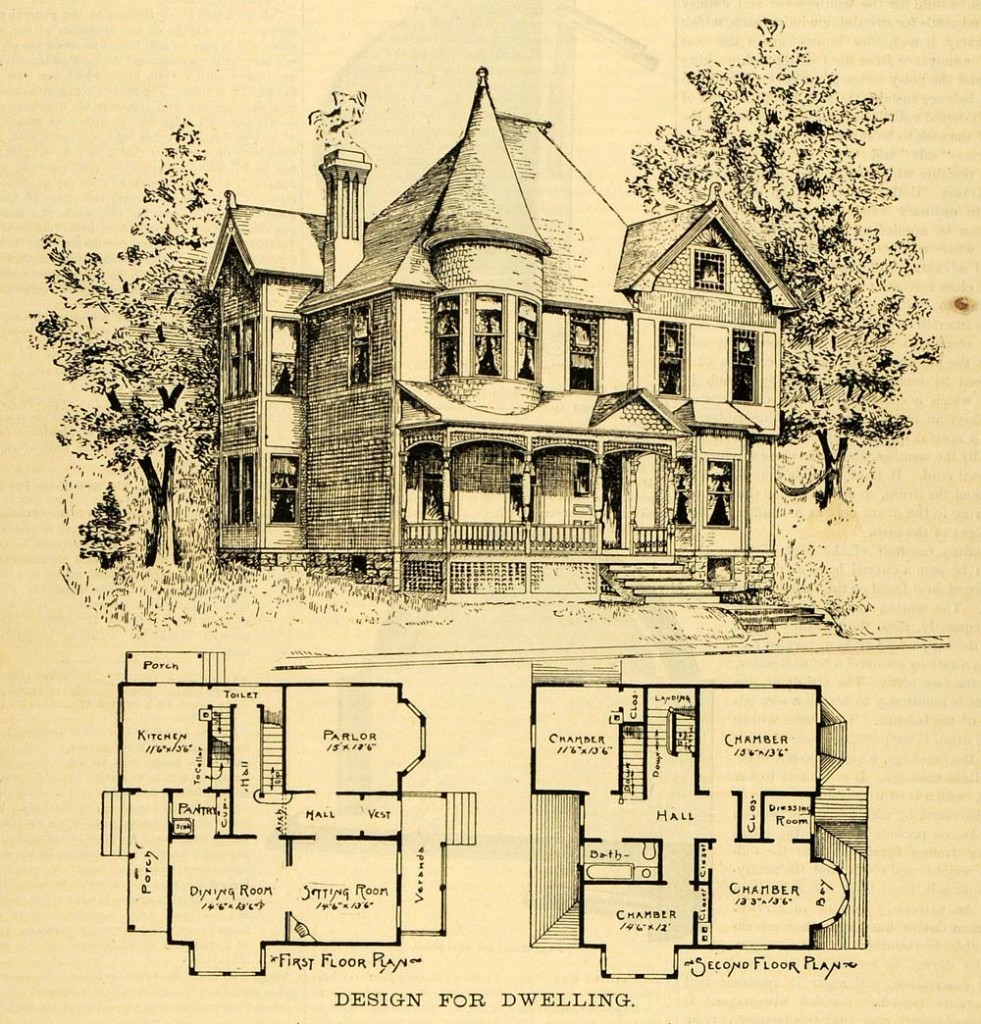 Porch
TOILET
KITCHEN
11'6"x13'6"
PARLOR
15'x13'6"
To Cellar
Hall
PANTRY
Sink
Arch
HALL
VEST
Porch
DINING ROOM
14'6"x13'6"
SITTING ROOM
14'6"x13'6"
Veranda
FIRST FLOOR PLAN
CLOS
LANDING
CHAMBER
11'6"x13'6"
CHAMBER
15'6"x13'6"
Down
Down
HALL
CLOS
DRESSING
ROOM
Bath
Closet
Closet
CHAMBER
14'6"x12'
CHAMBER
13'3"x13'6"
Bay
SECOND FLOOR PLAN
DESIGN FOR DWELLING.